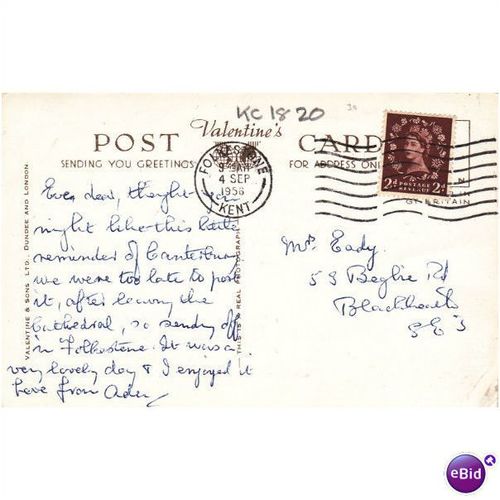 KC 18 20
POST Valentine's CARD
SENDING YOU GREETINGS FOR ADDRESS ONLY
FOLKESTONE
4 SEP
1956
KENT
POSTAGE
REVENUE
2d 2d
VALENTINE & SONS LTD. DUNDEE AND LONDON.
THIS IS A REAL PHOTOGRAPH
dear, thought you
might like this little
reminder of Canterbury
we were too late to post
it, after leaving the
Cathedral, so sending off
in Folkestone. It was a
very lovely day & I enjoyed it
Love from
Mrs Eady.
53 Begbie Rd
Blackheath
S E 3
eBid